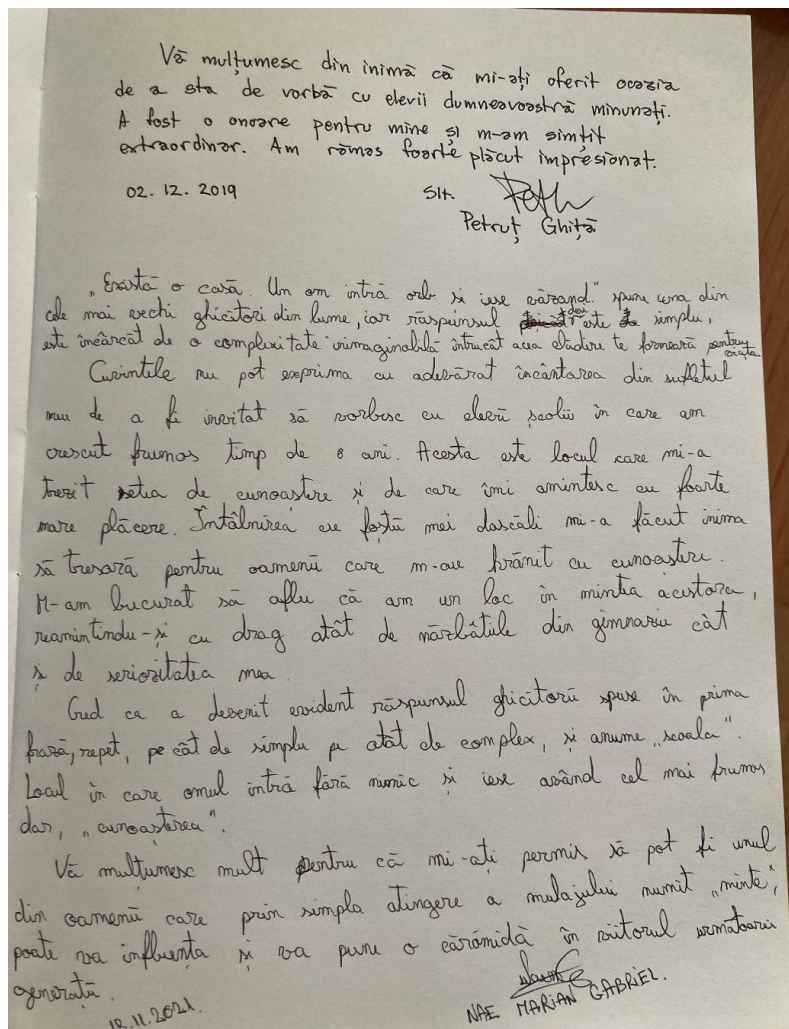 Vă mulțumesc din inimă că mi-ați oferit ocazia
de a sta de vorbă cu elevii dumneavoastră minunați.
A fost o onoare pentru mine și m-am simțit
extraordinar. Am rămas foarte plăcut impresionat.
02.12.2019 Slt.
Petruț Ghiță
„Există o casă. Un om intră orb si iese văzand." spune una din
cele mai vechi ghicitori din lume, iar răspunsul deși este simplu,
este încărcat de o complexitate inimaginabilă întrucât acea clădire te formează pentru
viata
Cuvintele nu pot exprima cu adevărat încântarea din sufletul
meu de a fi invitat să vorbesc cu elevii școlii în care am
crescut frumos timp de 8 ani. Acesta este locul care mi-a
trezit setea de cunoastere și de care îmi amintesc cu foarte
mare plăcere. Întâlnirea cu foștii mei dascăli mi-a făcut inima
să tresară pentru oamenii care m-au hrănit cu cunoastere.
M-am bucurat să aflu că am un loc în mintea acestora,
reamintindu-și cu drag atât de năzbâtiile din gimnaziu cât
și de seriozitatea mea.
Cred ca a devenit evident răspunsul ghicitorii spuse în prima
frază, repet, pe cât de simplu pe atât de complex, și anume „scoala".
Locul în care omul intră fără nimic și iese având cel mai frumos
dar, „cunoașterea".
Vă mulțumesc mult pentru că mi-ați permis să pot fi unul
din oamenii care prin simpla atingere a mulajului numit „minte",
poate va influența și va pune o cărămidă în viitorul următoarei
generații.
18.11.2021. NAE MARIAN GABRIEL.